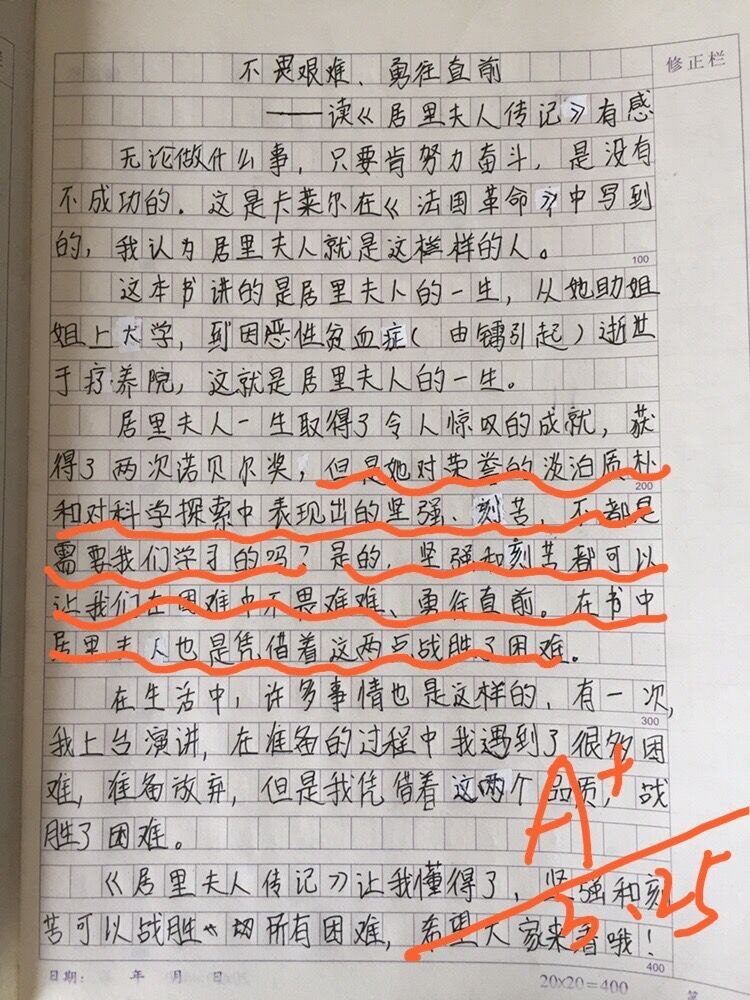 不畏艰难、勇往直前
修正栏
——读《居里夫人传记》有感
无论做什么事，只要肯努力奋斗，是没有
不成功的．这是卡莱尔在《法国革命》中写到
的，我认为居里夫人就是这样的人。
100
这本书讲的是居里夫人的一生，从她助姐
姐上大学，到因恶性贫血症（由镭引起）逝世
于疗养院，这就是居里夫人的一生。
居里夫人一生取得了令人惊叹的成就，获
得了两次诺贝尔奖，但是她对荣誉的淡泊质朴
200
和对科学探索中表现出的坚强、刻苦，不都是
需要我们学习的吗？是的，坚强和刻苦都可以
让我们在困难中不畏难难、勇往直前。在书中
居里夫人也是凭借着这两点战胜了困难。
在生活中，许多事情也是这样的，有一次，
300
我上台演讲，在准备的过程中我遇到了很多困
难，准备放弃，但是我凭借着这两个品质，战
胜了困难。
A+
《居里夫人传记》让我懂得了，坚强和刻
3.25
苦可以战胜一切所有困难，希望大家来看哦！
400
日期： 年 月 日
20×20=400
第